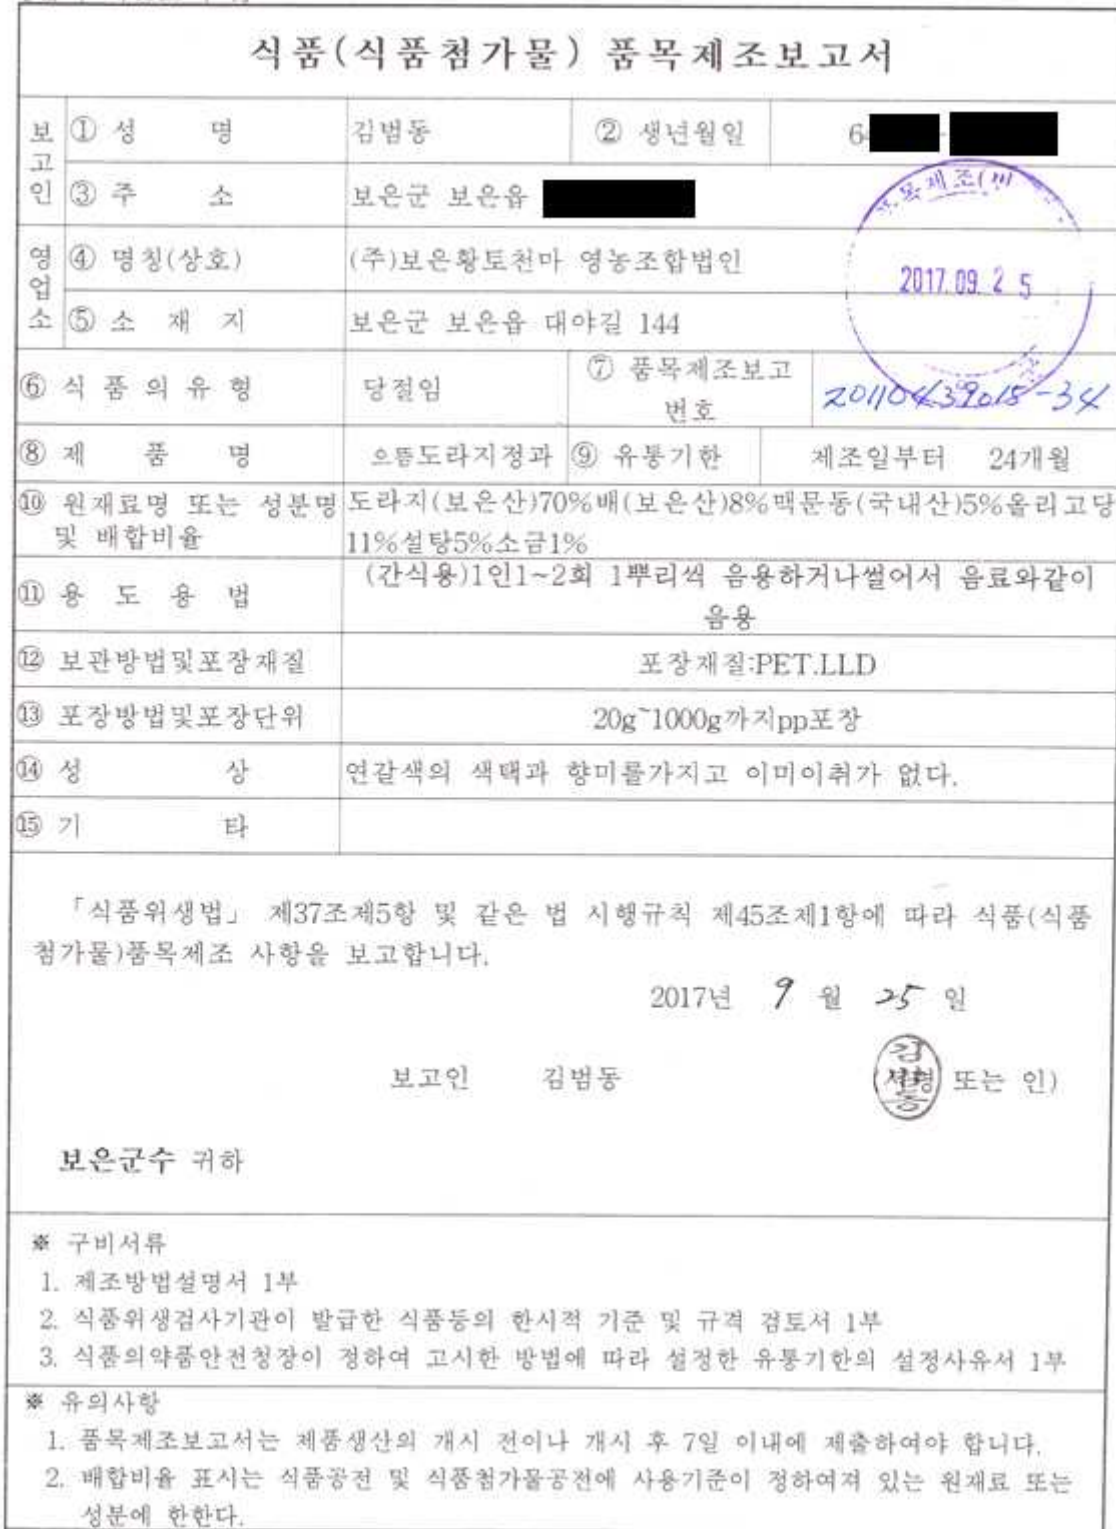 식품(식품첨가물) 품목제조보고서
보고인 ① 성 명 김범동 ② 생년월일 6
③ 주 소 보은군 보은읍
영업소 ④ 명칭(상호) (주)보은황토천마 영농조합법인
2017.09.25
⑤ 소 재 지 보은군 보은읍 대야길 144
⑥ 식 품 의 유 형 당절임 ⑦ 품목제조보고 번호 20110439018-34
⑧ 제 품 명 으뜸도라지정과 ⑨ 유통기한 제조일부터 24개월
⑩ 원재료명 또는 성분명 및 배합비율 도라지(보은산)70%배(보은산)8%맥문동(국내산)5%올리고당
11%설탕5%소금1%
⑪ 용 도 용 법 (간식용)1인1~2회 1뿌리씩 음용하거나썰어서 음료와같이
음용
⑫ 보관방법및포장재질 포장재질:PET.LLD
⑬ 포장방법및포장단위 20g~1000g까지pp포장
⑭ 성 상 연갈색의 색택과 향미를가지고 이미이취가 없다.
⑮ 기 타
「식품위생법」 제37조제5항 및 같은 법 시행규칙 제45조제1항에 따라 식품(식품
첨가물)품목제조 사항을 보고합니다.
2017년 9 월 25 일
보고인 김범동 (서명 또는 인)
보은군수 귀하
※ 구비서류
1. 제조방법설명서 1부
2. 식품위생검사기관이 발급한 식품등의 한시적 기준 및 규격 검토서 1부
3. 식품의약품안전청장이 정하여 고시한 방법에 따라 설정한 유통기한의 설정사유서 1부
※ 유의사항
1. 품목제조보고서는 제품생산의 개시 전이나 개시 후 7일 이내에 제출하여야 합니다.
2. 배합비율 표시는 식품공전 및 식품첨가물공전에 사용기준이 정하여져 있는 원재료 또는
성분에 한한다.